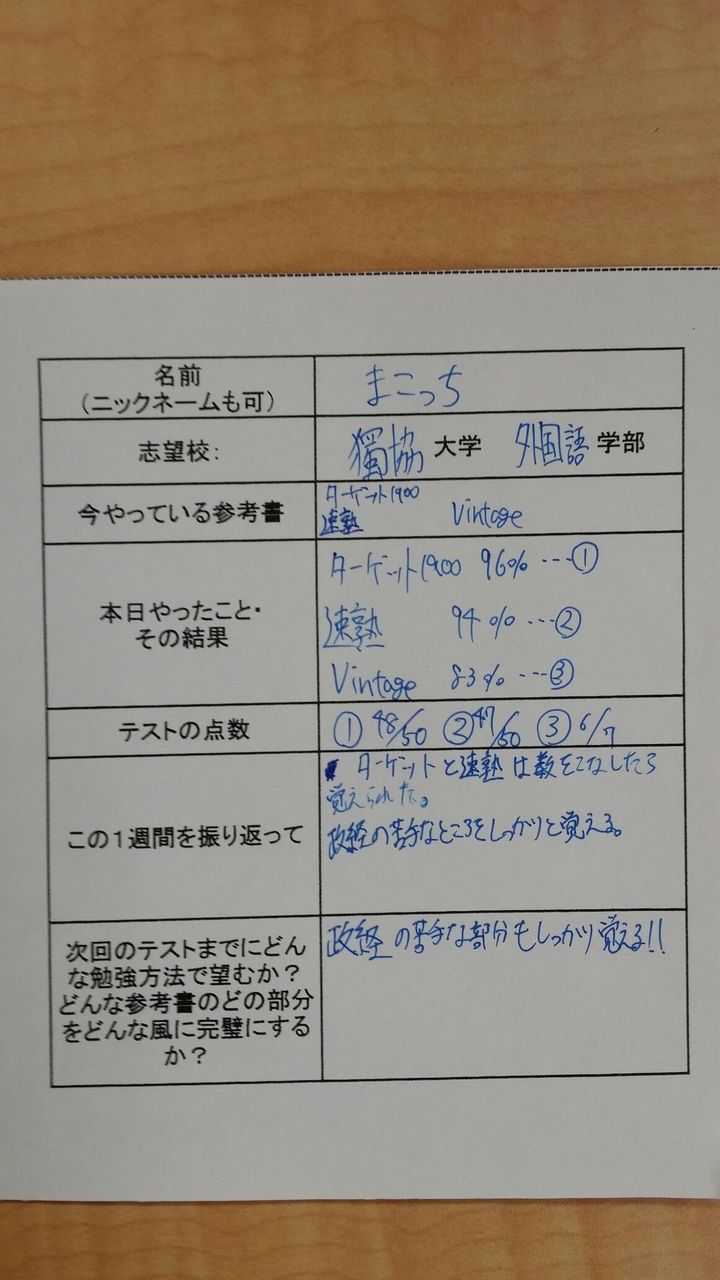 名前
(ニックネームも可)
まこっち
志望校:
獨協 大学 外国語 学部
今やっている参考書
ターゲット1900
速熟 Vintage
本日やったこと・
その結果
ターゲット1900 96% …①
速熟 94% …②
Vintage 83% …③
テストの点数
① 48/50 ② 47/50 ③ 6/7
この1週間を振り返って
ターゲットと速熟は数をこなしたら
覚えられた。
政経の苦手なところをしっかりと覚える。
次回のテストまでにどん
な勉強方法で望むか?
どんな参考書のどの部分
をどんな風に完璧にする
か?
政経の苦手な部分もしっかり覚える!!